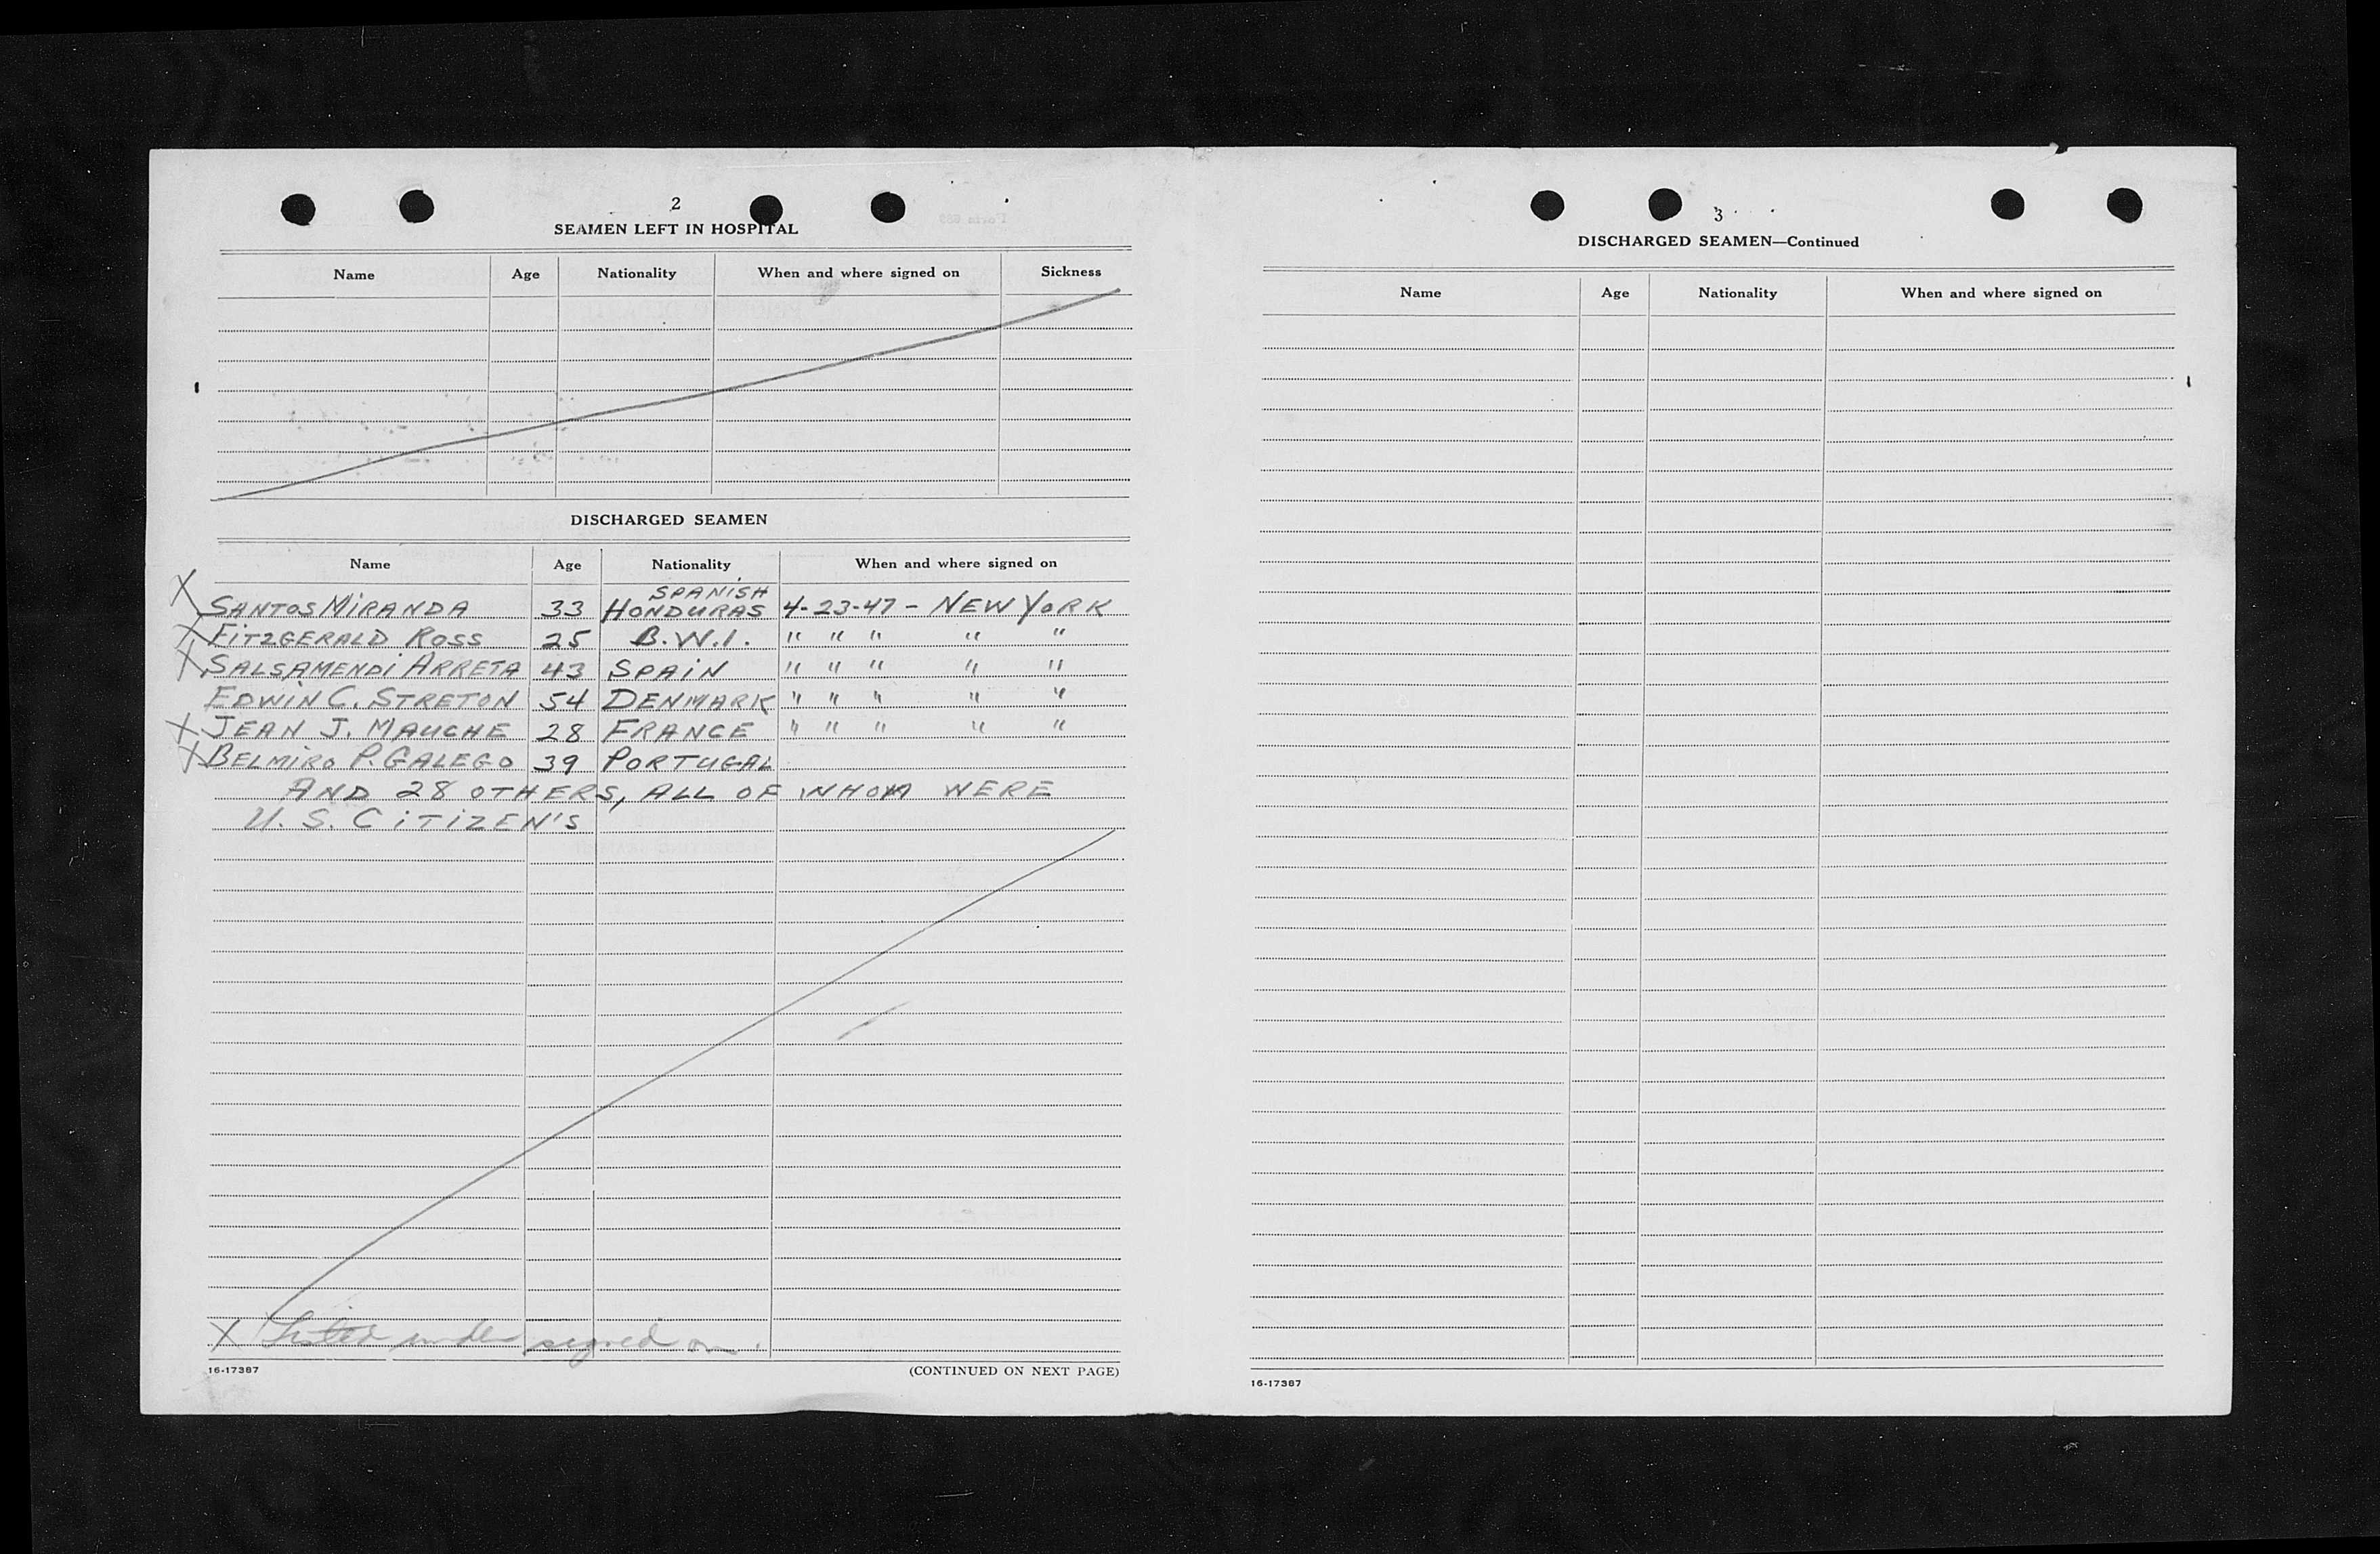 2
SEAMEN LEFT IN HOSPITAL
Name Age Nationality When and where signed on Sickness
DISCHARGED SEAMEN
Name Age Nationality When and where signed on
SPANISH
X SANTOS MIRANDA 33 HONDURAS 4-23-47 - NEW YORK
X FITZGERALD ROSS 25 B.W.I. " " " " "
X SALSAMENDI ARRETA 43 SPAIN " " " " "
EDWIN C. STRETON 54 DENMARK " " " " "
X JEAN J. MAUCHE 28 FRANCE " " " " "
X BELMIRO P. GALEGO 39 PORTUGAL
AND 28 OTHERS, ALL OF WHOM WERE
U. S. CITIZEN'S
X Listed under signed on.
16-17387 (CONTINUED ON NEXT PAGE)
3
DISCHARGED SEAMEN—Continued
Name Age Nationality When and where signed on
16-17387